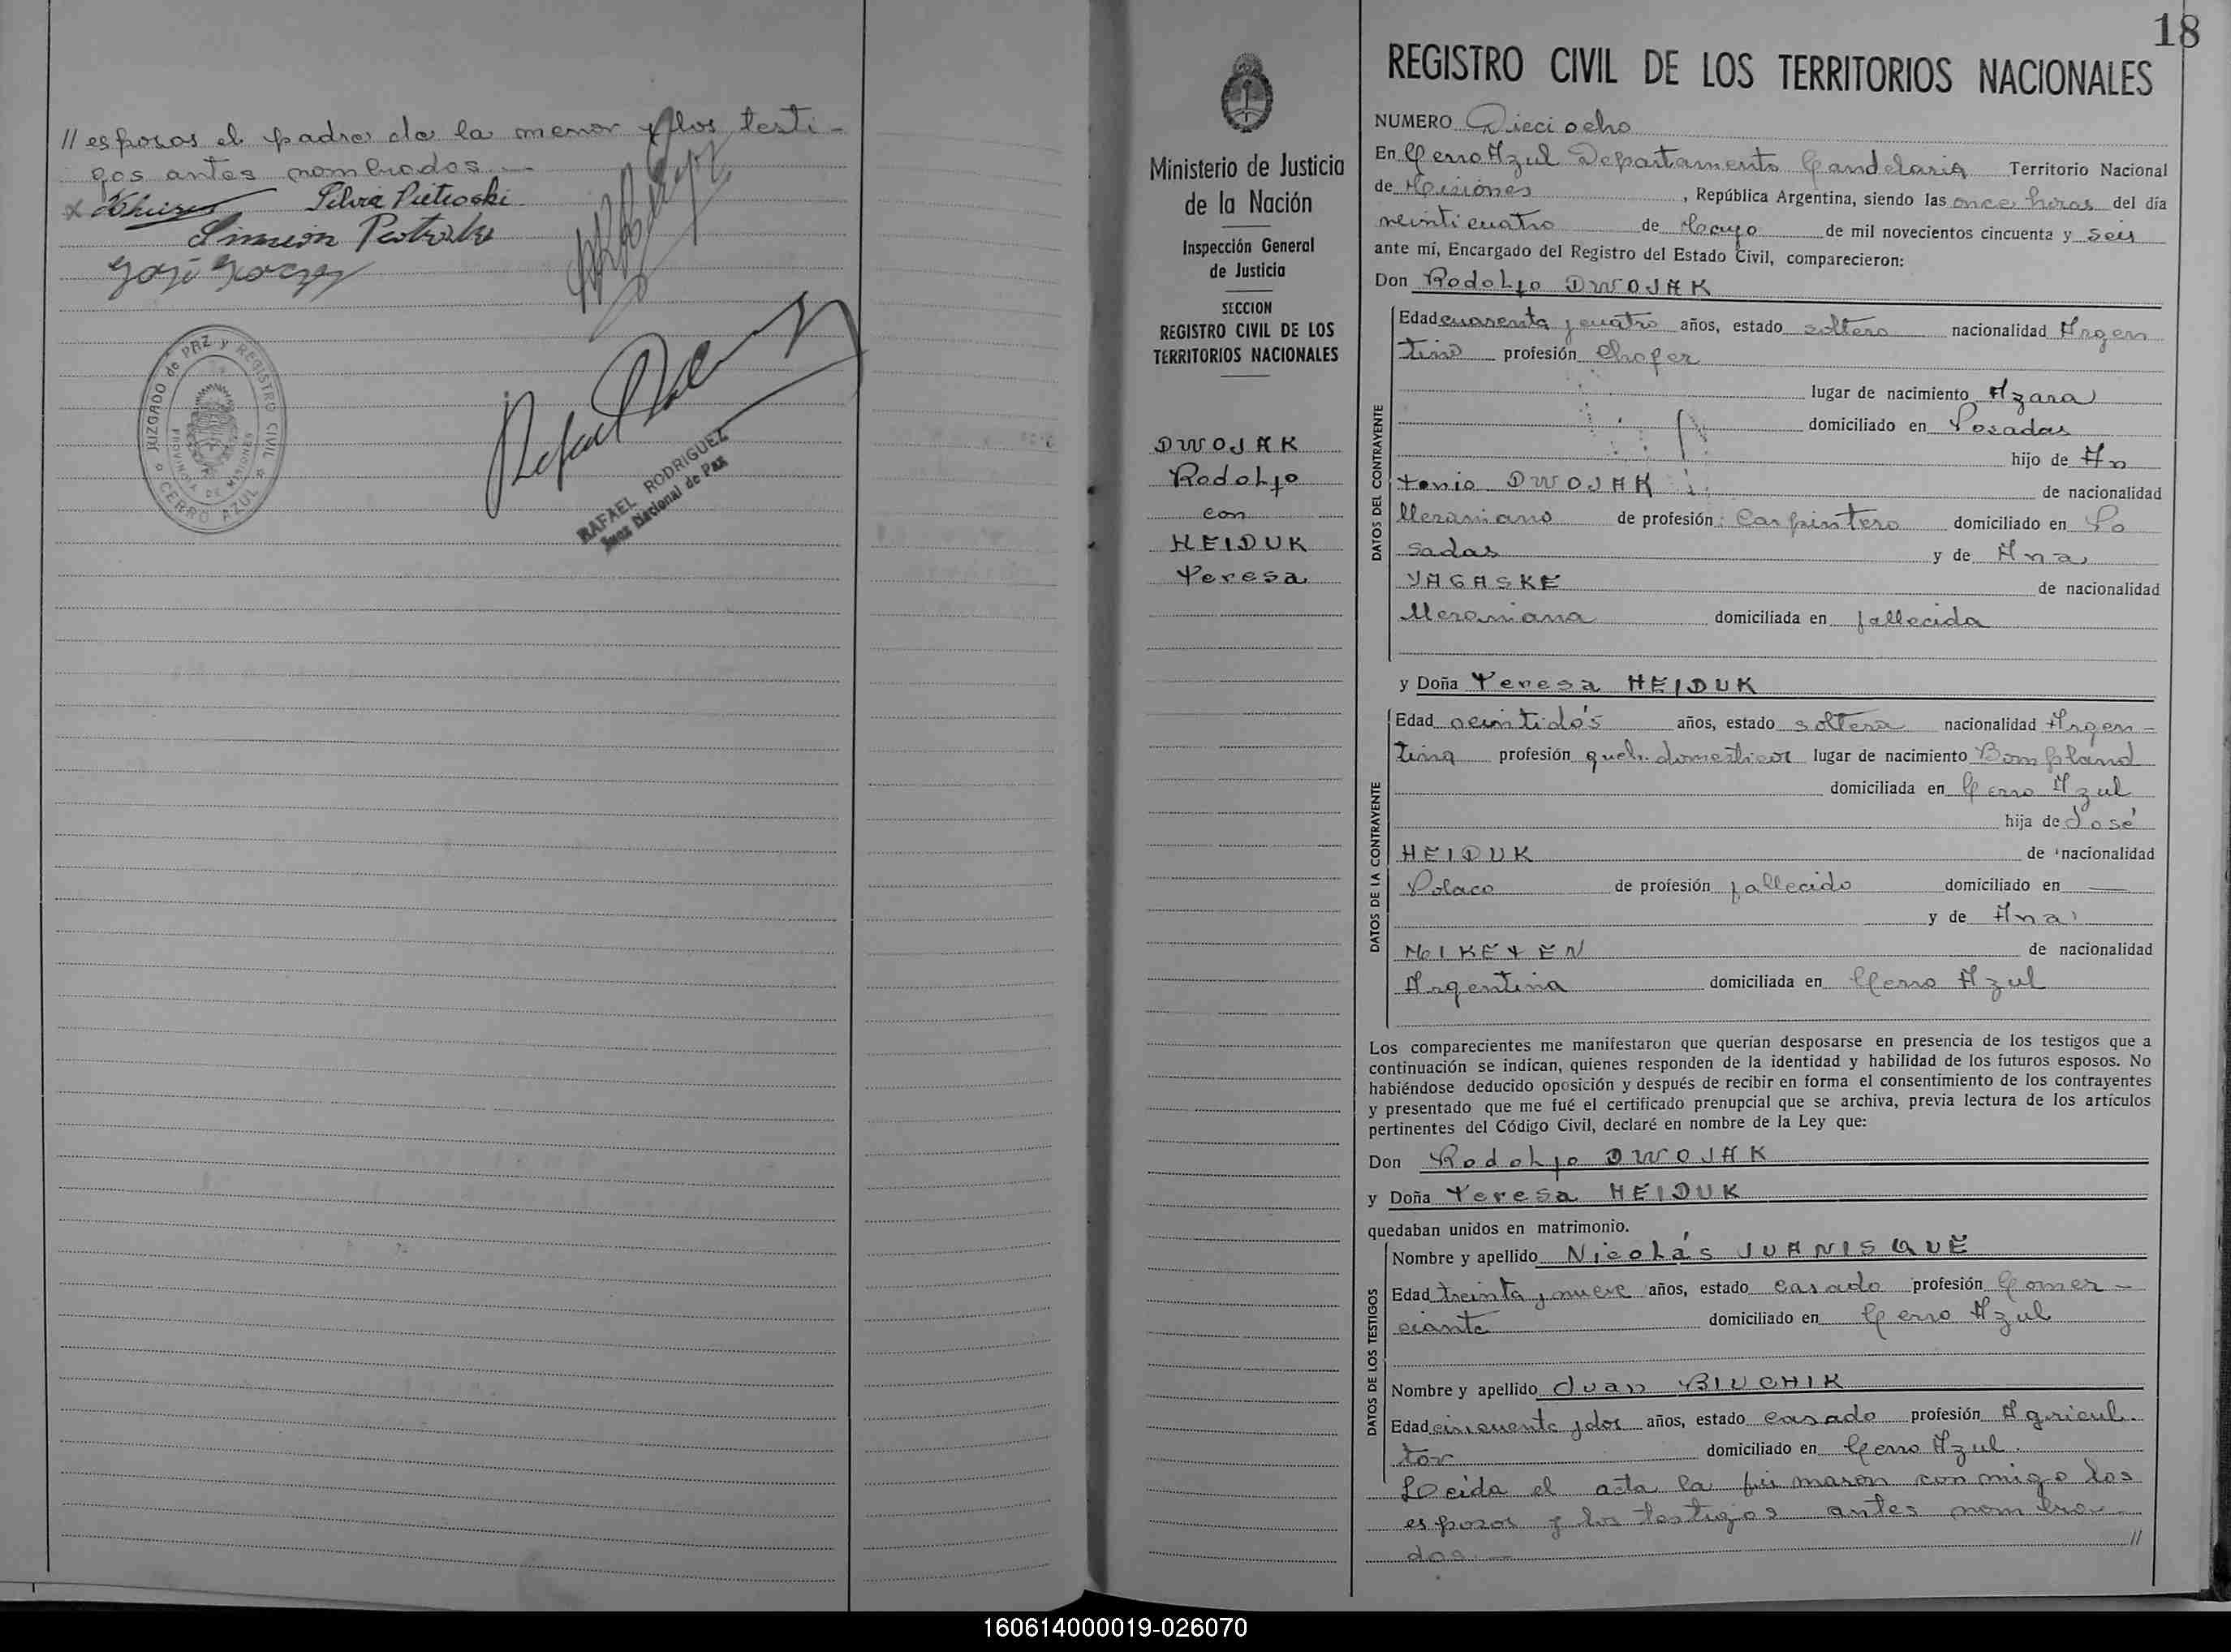 // esposos el padre de la menor y los testi-
gos antes nombrados.—
Silvia Pietroski
JUZGADO de PAZ y REGISTRO CIVIL
PROVINCIA DE MISIONES
CERRO AZUL
RAFAEL RODRIGUEZ
Juez Nacional de Paz
Ministerio de Justicia
de la Nación
Inspección General
de Justicia
SECCION
REGISTRO CIVIL DE LOS
TERRITORIOS NACIONALES
DWOJAK
Rodolfo
con
HEIDUK
Teresa
18
REGISTRO CIVIL DE LOS TERRITORIOS NACIONALES
NUMERO Dieciocho
En Cerro Azul Departamento Candelaria Territorio Nacional
de Misiones, República Argentina, siendo las once horas del día
veinticuatro de Mayo de mil novecientos cincuenta y seis
ante mí, Encargado del Registro del Estado Civil, comparecieron:
Don Rodolfo DWOJAK
DATOS DEL CONTRAYENTE
Edad cuarenta y cuatro años, estado soltero nacionalidad Argen
tino profesión Chofer
lugar de nacimiento Azara
domiciliado en Posadas
hijo de An
tonio DWOJAK de nacionalidad
Ucraniano de profesión Carpintero domiciliado en Po
sadas y de Ana
YAGASKE de nacionalidad
Ucraniana domiciliada en fallecida
y Doña Teresa HEIDUK
DATOS DE LA CONTRAYENTE
Edad veintidós años, estado soltera nacionalidad Argen-
tina profesión queh. domesticos lugar de nacimiento Bompland
domiciliada en Cerro Azul
hija de José
HEIDUK de nacionalidad
Polaco de profesión fallecido domiciliado en —
y de Ana
MIKETEN de nacionalidad
Argentina domiciliada en Cerro Azul
Los comparecientes me manifestaron que querían desposarse en presencia de los testigos que a
continuación se indican, quienes responden de la identidad y habilidad de los futuros esposos. No
habiéndose deducido oposición y después de recibir en forma el consentimiento de los contrayentes
y presentado que me fué el certificado prenupcial que se archiva, previa lectura de los artículos
pertinentes del Código Civil, declaré en nombre de la Ley que:
Don Rodolfo DWOJAK
y Doña Teresa HEIDUK
quedaban unidos en matrimonio.
DATOS DE LOS TESTIGOS
Nombre y apellido Nicolás JUANISQUE
Edad treinta y nueve años, estado casado profesión Comer-
ciante domiciliado en Cerro Azul
Nombre y apellido Juan BIUCHIK
Edad cincuenta y dos años, estado casado profesión Agricul-
tor domiciliado en Cerro Azul.
Leeida el acta la firmaron conmigo los
esposos y los testigos antes nombra-
dos.— //
160614000019-026070